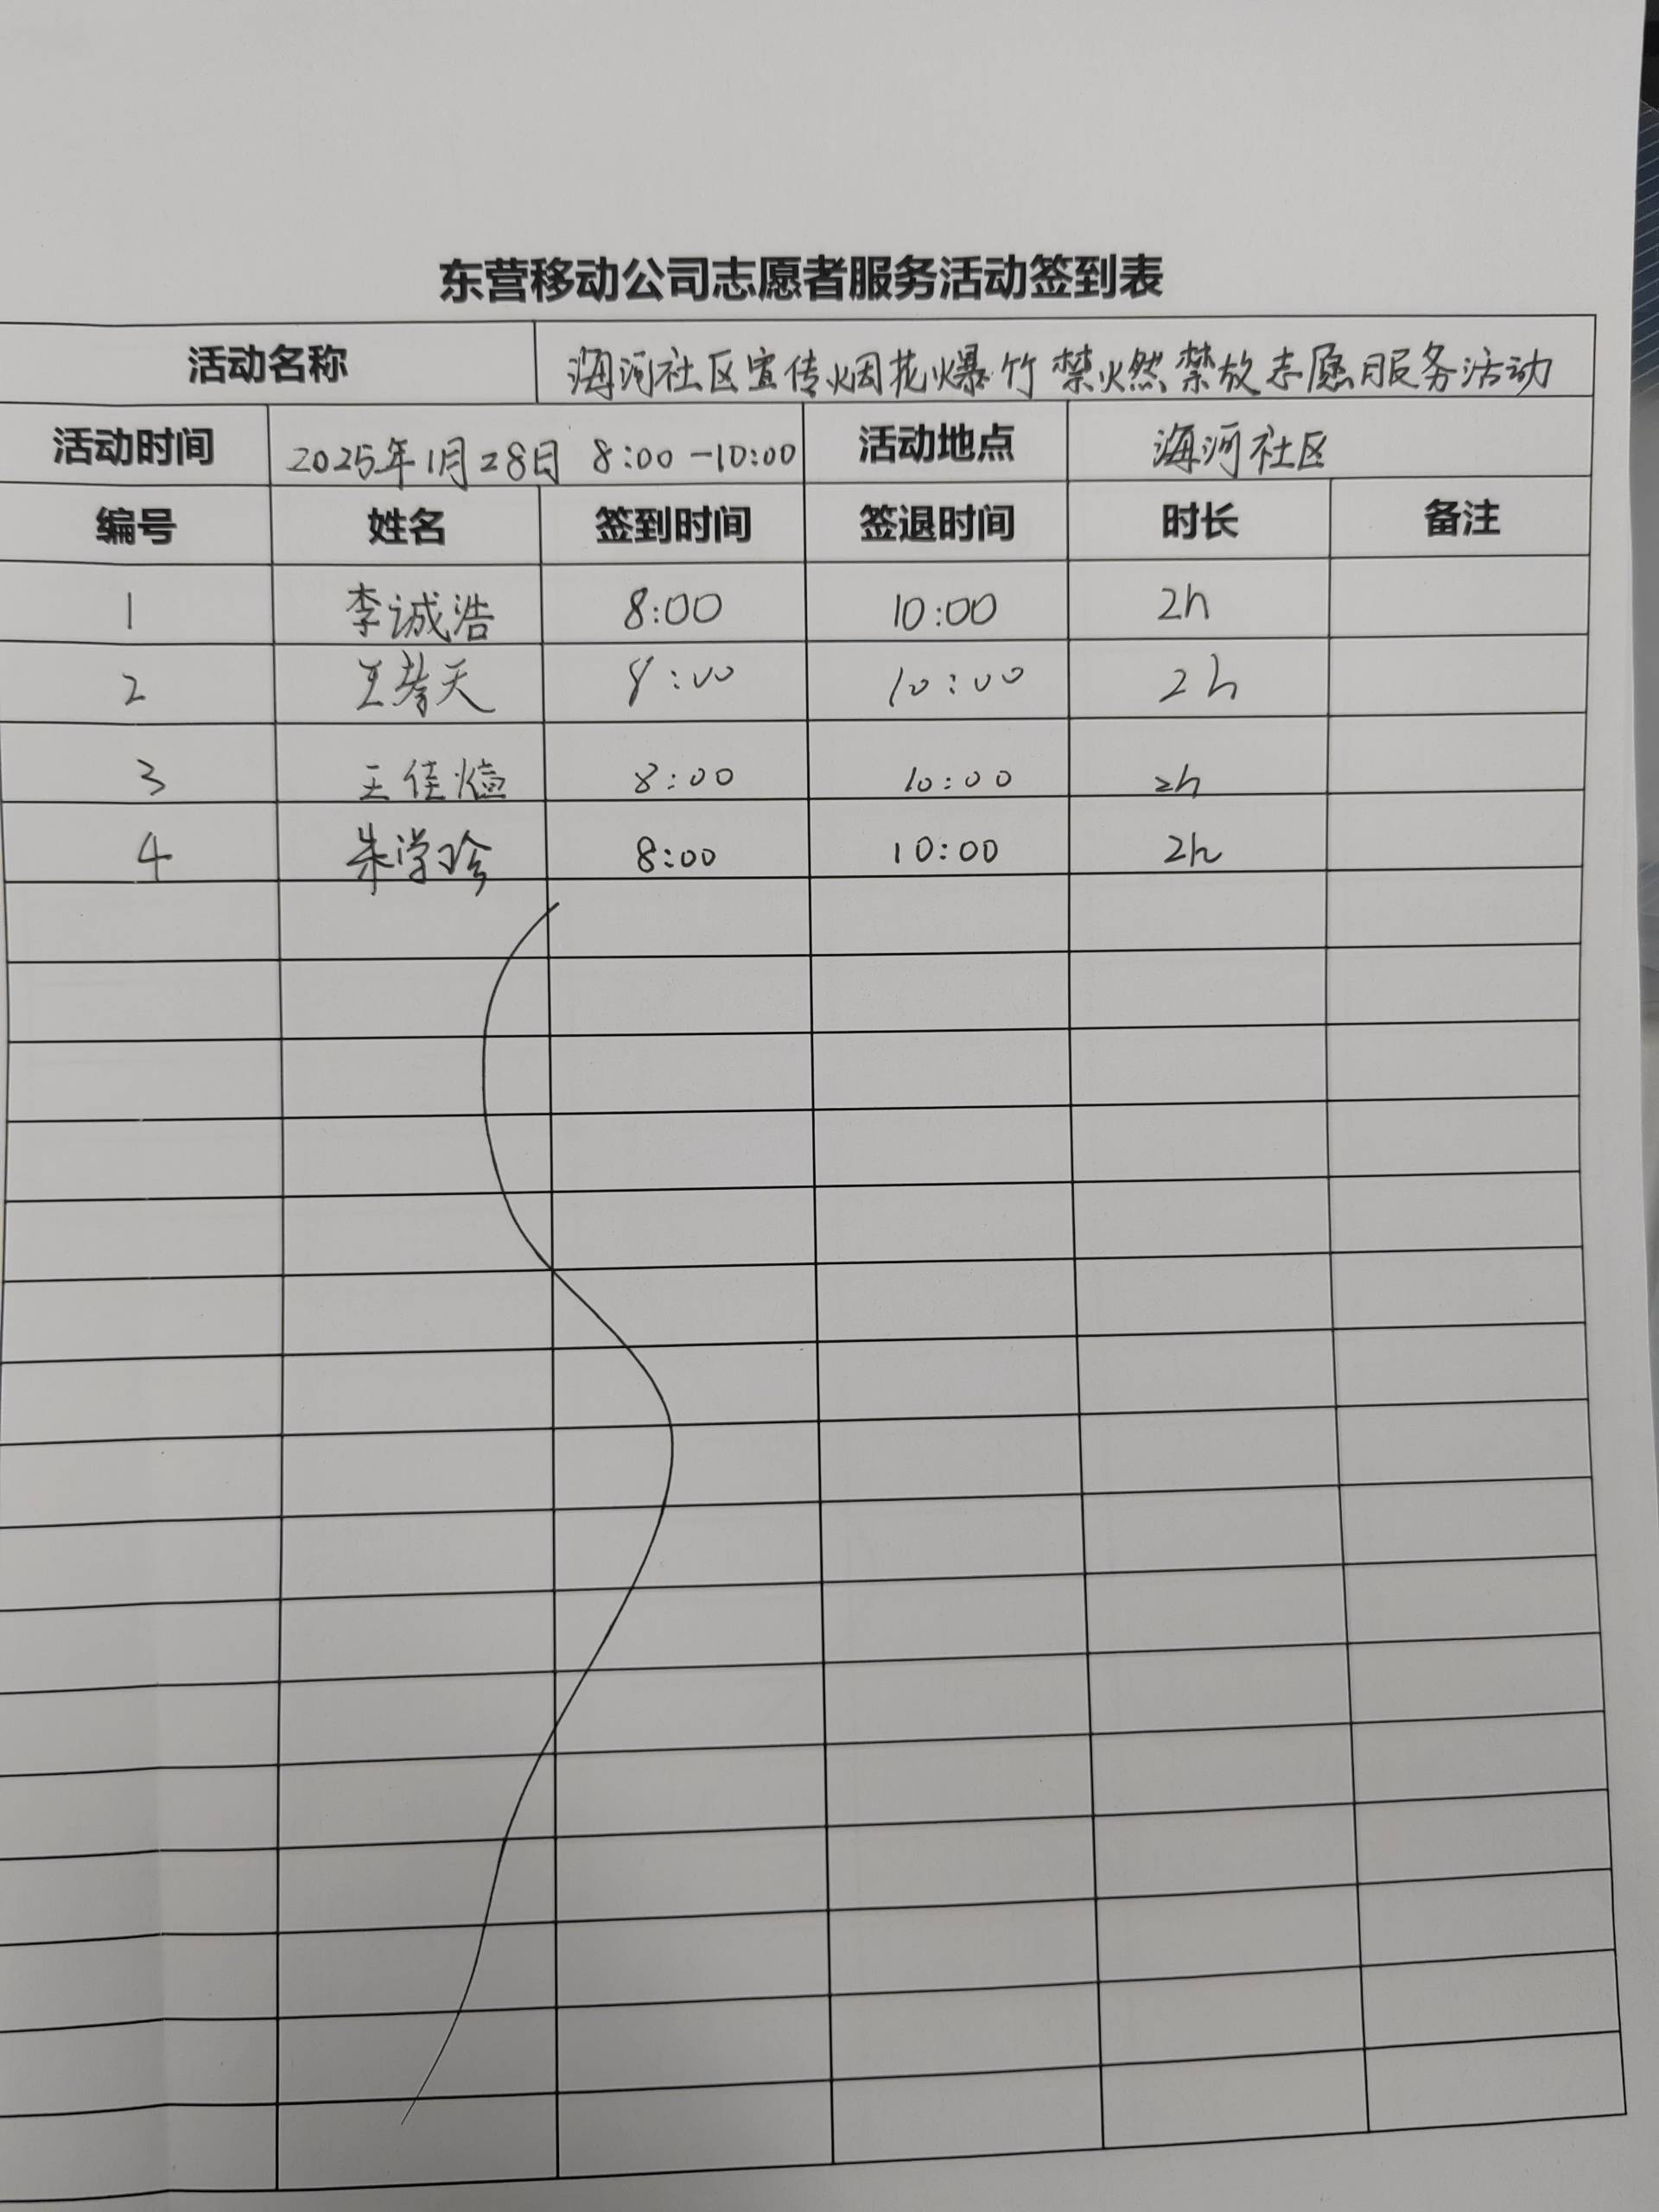 东营移动公司志愿者服务活动签到表
活动名称 海河社区宣传烟花爆竹禁燃禁放志愿服务活动
活动时间 2025年1月28日 8:00-10:00 活动地点 海河社区
编号 姓名 签到时间 签退时间 时长 备注
1 李诚浩 8:00 10:00 2h
2 8:00 10:00 2h
3 王佳煊 8:00 10:00 2h
4 朱学珍 8:00 10:00 2h